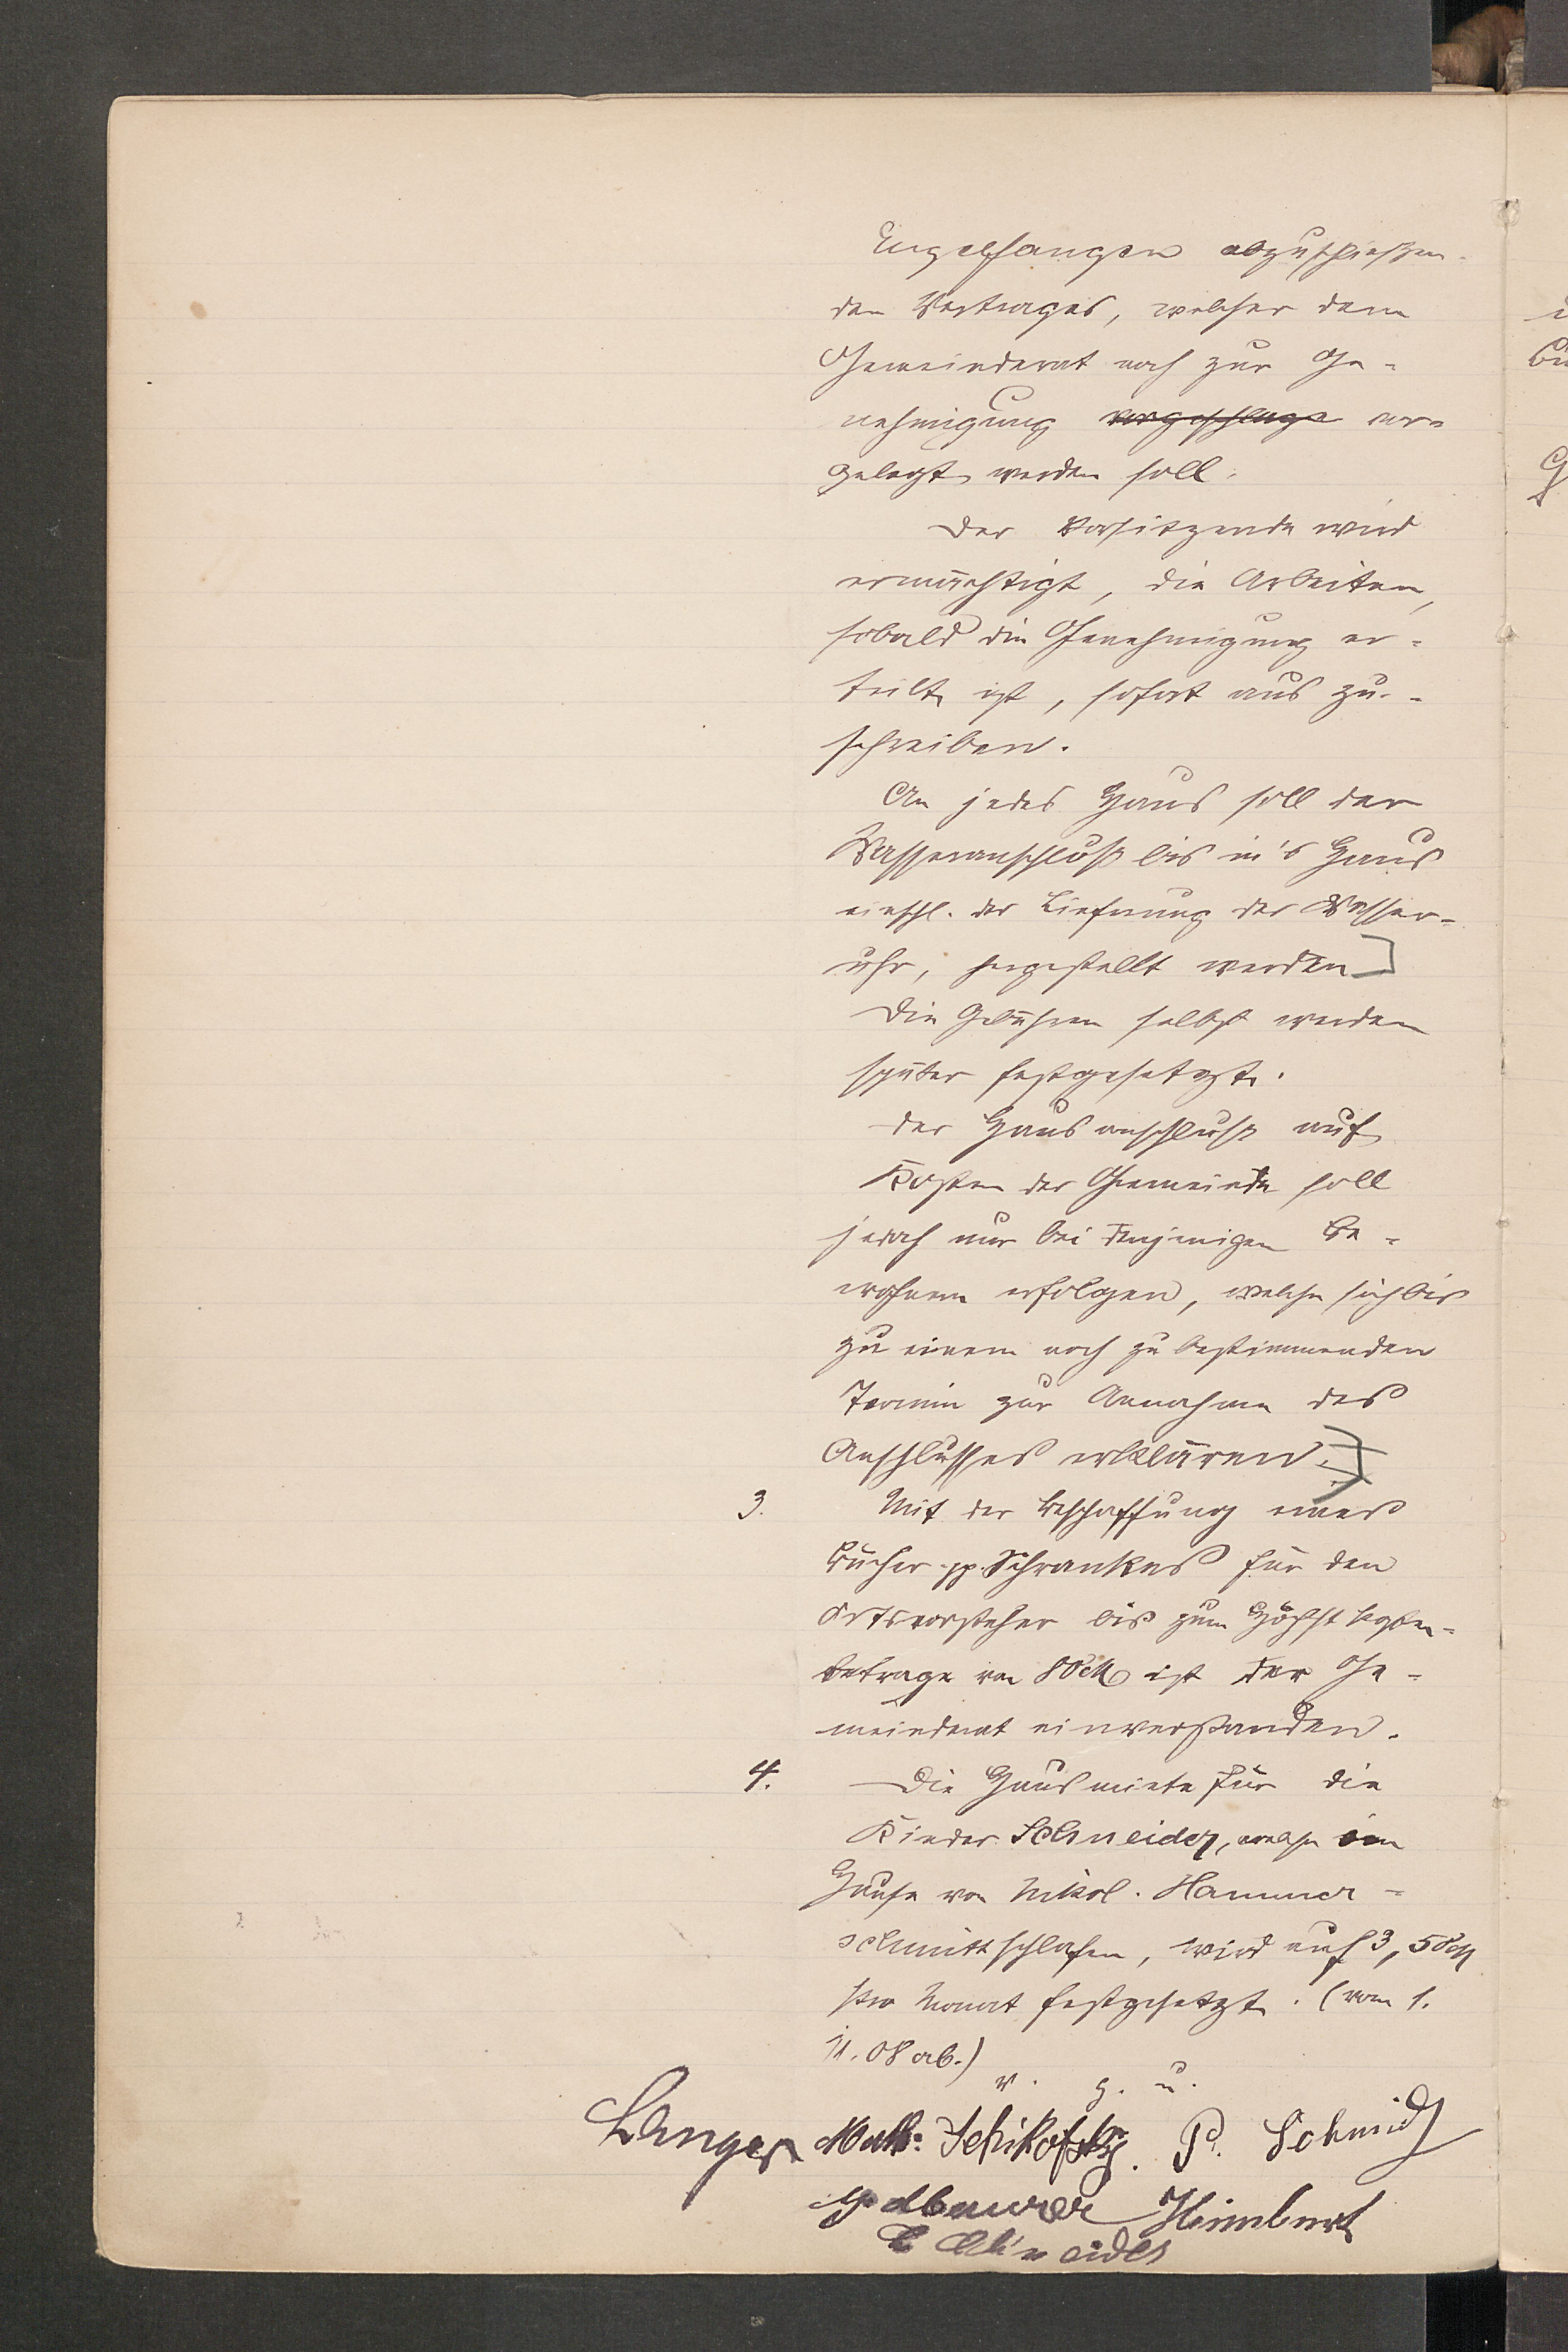 Engelfangen abzuschließen-
den Vertrages, welcher dem
Gemeinderat noch zur Ge-
nehmigung vorgeschlage vor-
gelegt werden soll.
Der Vorsitzende wird
ermächtigt, die Arbeiten,
sobald die Genehmigung er-
teilt ist, sofort aus zu-
schreiben.
An jedes Haus soll der
Wasseranschluß bis in's Haus
einschl. der Lieferung der Wasser-
uhr, hergestellt werden]
Die Gebühren selbst werden
später festgesetzt.
Der Hausanschluß auf
Kosten der Gemeinde soll
jedoch nur bei denjenigen Be-
wohnern erfolgen, welche sich bis
zu einem noch zu bestimmenden
Termin zur Annahme des
Anschlusses erklären.]
3. Mit der Beschaffung eines
Bücher-pp. Schrankes für den
Ortsvorsteher bis zum Höchstkosten-
betrage von 80 M ist der Ge-
meinderat einverstanden.
4. Die Hausmiete für die
Kinder Schneider, welche im
Hause von Nikol. Hammer-
schmitt schlafen, wird auf 3,50 M
pro Monat festgesetzt. (vom 1.
11. 08 ab.)
v. g. u.
Langer Math. Schikofsky. P. Schmidt
Himbert
Schneider